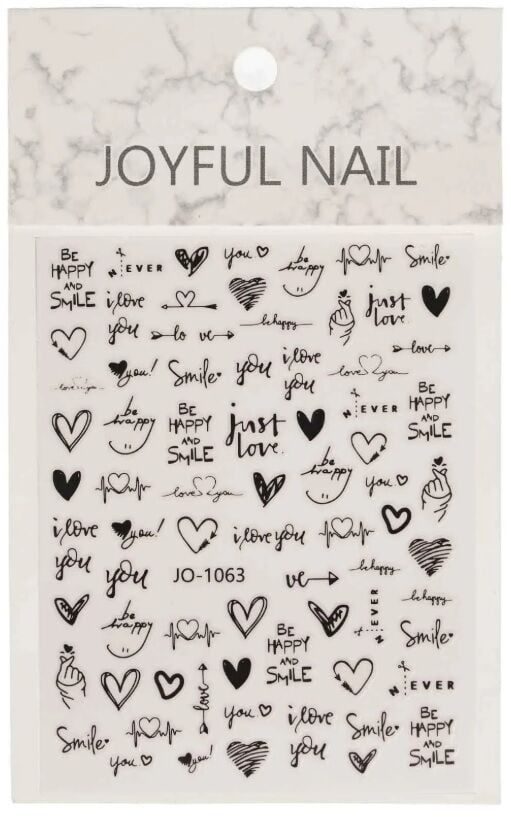 JOYFUL NAIL
BE
HAPPY
AND
SMiLE
NEVER
you
be
happy
Smile
i love
you
just
love.
lo ve
be happy
love
you!
Smile
you
i love
you
love you
love you
NEVER
BE
HAPPY
AND
SMiLE
be
happy
BE
HAPPY
AND
SMiLE
just
love.
be
happy
you
love you
i love
you
you!
i love you
you
JO-1063
ve
be happy
be happy
NEVER
be
happy
BE
HAPPY
AND
SMiLE
Smile
love
NEVER
you
i love
you
Smile
BE
HAPPY
AND
SMiLE
Smile
you
you!